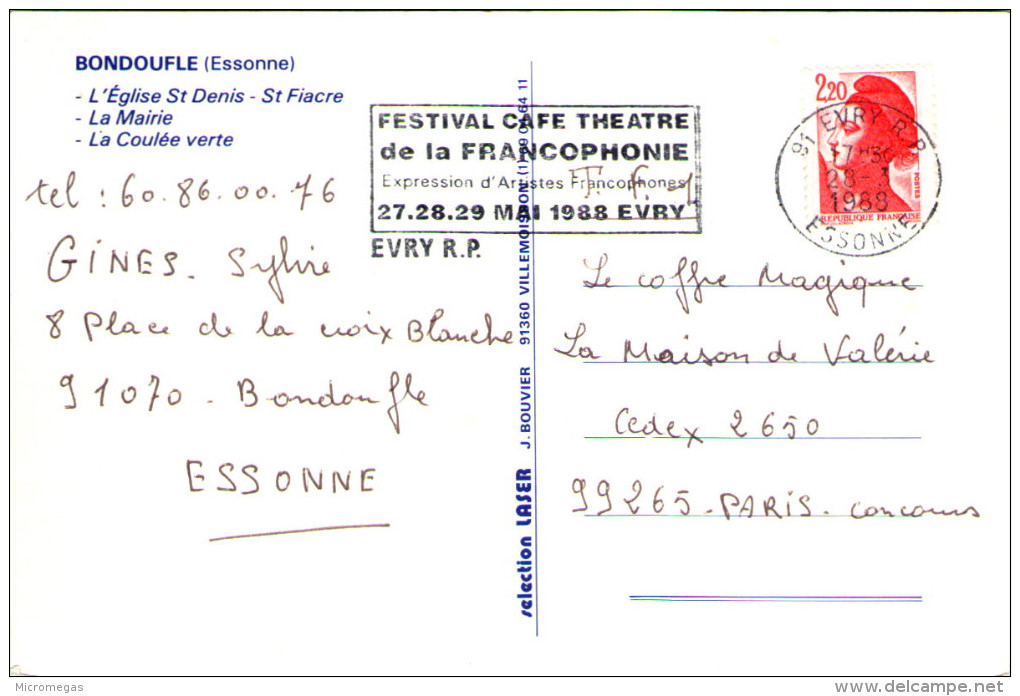 BONDOUFLE (Essonne)
- L'Église St Denis - St Fiacre
- La Mairie
- La Coulée verte
FESTIVAL CAFE THEATRE
de la FRANCOPHONIE
Expression d'Artistes Francophones
27.28.29 MAI 1988 EVRY
EVRY R.P.
T.F.1
2,20
POSTES
REPUBLIQUE FRANÇAISE
91 EVRY R.P.
28-3
1988
ESSONNE
tel : 60.86.00.76
GINES. Sylvie
8 Place de la croix Blanche
91070 - Bondoufle
ESSONNE
selection LASER J. BOUVIER 91360 VILLEMOISSON
Le coffre Magique
La Maison de Valérie
Cedex 2650
99265 - PARIS - concours
Micromegas
delcampe.net